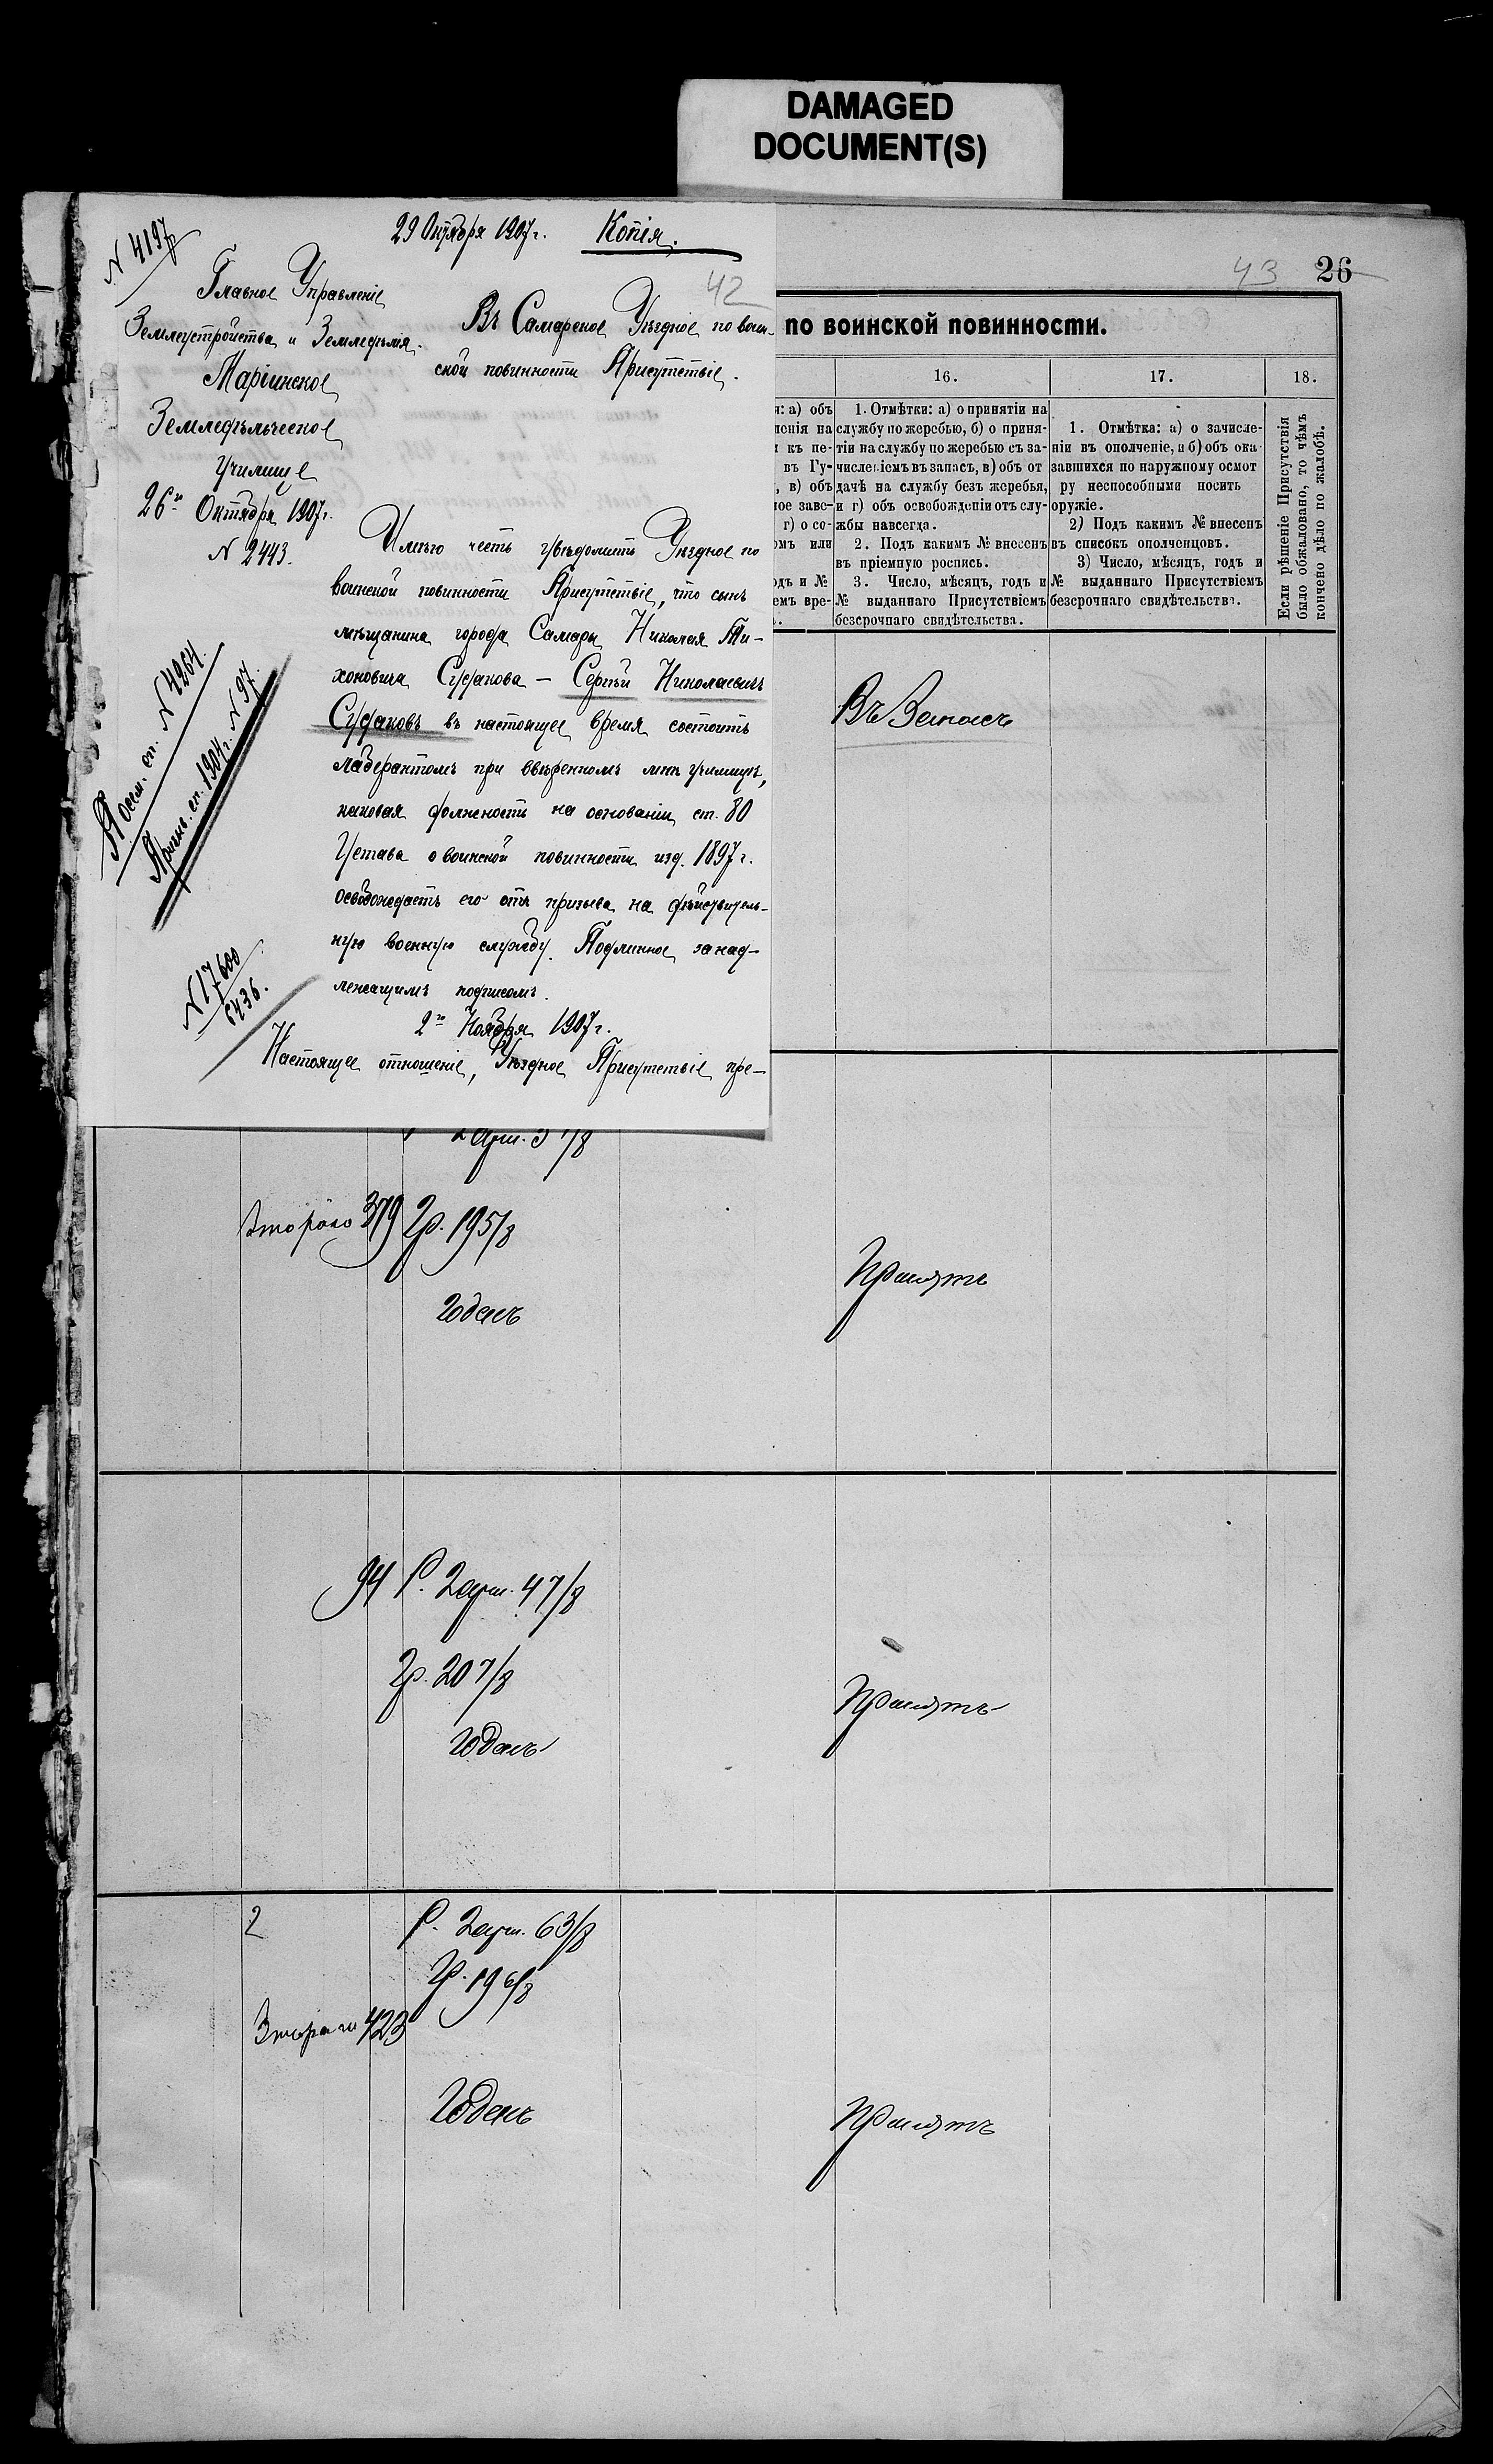 DAMAGED
DOCUMENT(S)
N 4197
29 Октября 1907 г. Копія.
42
Главное Управленіе
Землеустройства и Земледѣлія.
Маріинское
Земледѣльческое
Училище
26го Октября 1907 г.
N 2443.
Въ Самарское Уѣздное по воин-
ской повинности Присутствіе.
Имѣю честь увѣдомить Уѣздное по
воинской повинности Присутствіе, что сынъ
мѣщанина города Самары Николая Ти-
хоновича Судакова – Сергѣй Николаевичъ
Судаковъ въ настоящее время состоитъ
лаборантомъ при ввѣренномъ мнѣ училищѣ,
каковая должность на основаніи ст. 80
Устава о воинской повинности изд. 1897 г.
освобождаетъ его отъ призыва на дѣйствитель-
ную военную службу. Подлинное за над-
лежащимъ подписомъ.
2го Ноября 1907 г.
Настоящее отношеніе, Уѣздное Присутствіе пре-
Посем. сп. N 4264.
Призыв. сп. 1904 г. N 97.
N 17600
6436.
43 26
по воинской повинности.
16. 17. 18.
1. Отмѣтки: а) о принятіи на
службу по жеребью, б) о приня-
тіи на службу по жеребью съ за-
численіемъ въ запасъ, в) объ от
дачѣ на службу безъ жеребья,
и г) объ освобожденіи отъ слу-
жбы навсегда.
2. Подъ какимъ № внесенъ
въ пріемную роспись.
3. Число, мѣсяцъ, годъ и
№ выданнаго Присутствіемъ
безсрочнаго свидѣтельства.
1. Отмѣтка: а) о зачисле-
ніи въ ополченіе, и б) объ ока
завшихся по наружному осмот
ру неспособными носить
оружіе.
2) Подъ какимъ № внесенъ
въ списокъ ополченцовъ.
3) Число, мѣсяцъ, годъ и
№ выданнаго Присутствіемъ
безсрочнаго свидѣтельства.
Если рѣшеніе Присутствія
было обжаловано, то чѣмъ
кончено дѣло по жалобѣ.
Въ Запасъ
2 арш. 3 1/8
Второго 379 Гр. 19 5/8
Годенъ
Принятъ
94 Р. 2 арш. 4 7/8
Гр. 20 7/8
Годенъ
Принятъ
2 Р. 2 арш. 6 3/8
Гр. 19 6/8
Второго 423
Годенъ
Принятъ